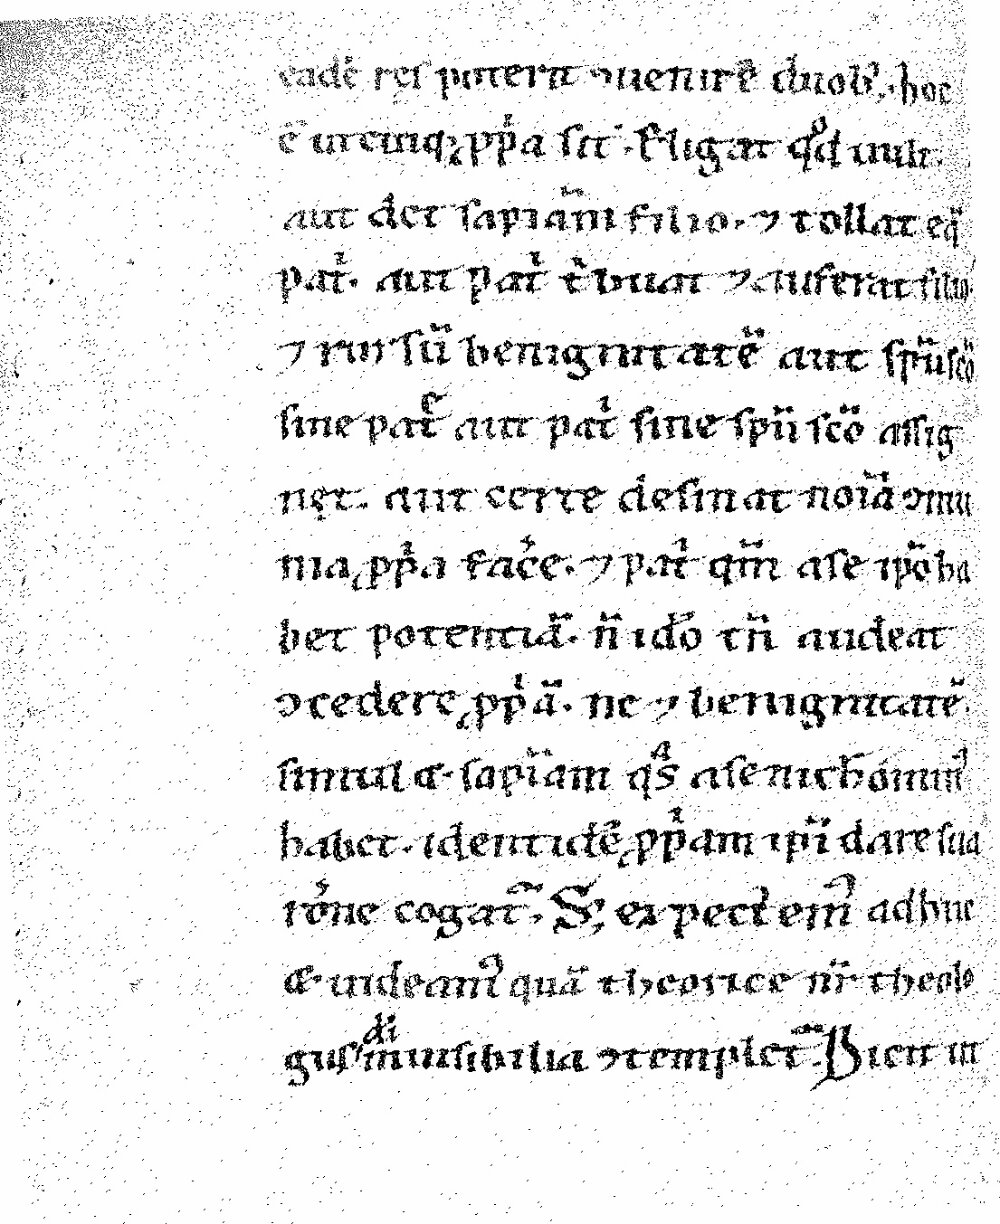 eadē reſ poterit ꝯuenirē duob᷒. hoc
ē utcuiq; ꝓp̍a ſit. Eligat qͦd uult.
aut det ſapiam̄ filio. ⁊ tollat eq̄
pat̍. aut pat̍ t̍buat ⁊ auferat filio
⁊ rurſū benignitatē aut ſpū ſcō
ſine patͤ aut pat̍ ſine ſpū ſcō aſſig
nęt. aut certe deſinat noīa ꝯmu
nia ꝓp̍a fac̍e. ⁊ pat̍ qm̄ aſe ip̄o ha
bet potentiā. n̄ id̄o tn̄ audeat
ꝯcedere ꝓp̍ā. ne ⁊ benignitatē
ſimul & ſapīam qᷓs aſe nichomin᷒
habet. identidē ꝓp̍am ip̄i dare ſua
r̄one cogat᷑. S; expectem᷒ adhuc
& uideam᷒ quā theorice nr̄ theolo
guſ di inuiſibilia ꝯtemplet᷑. Dicit in